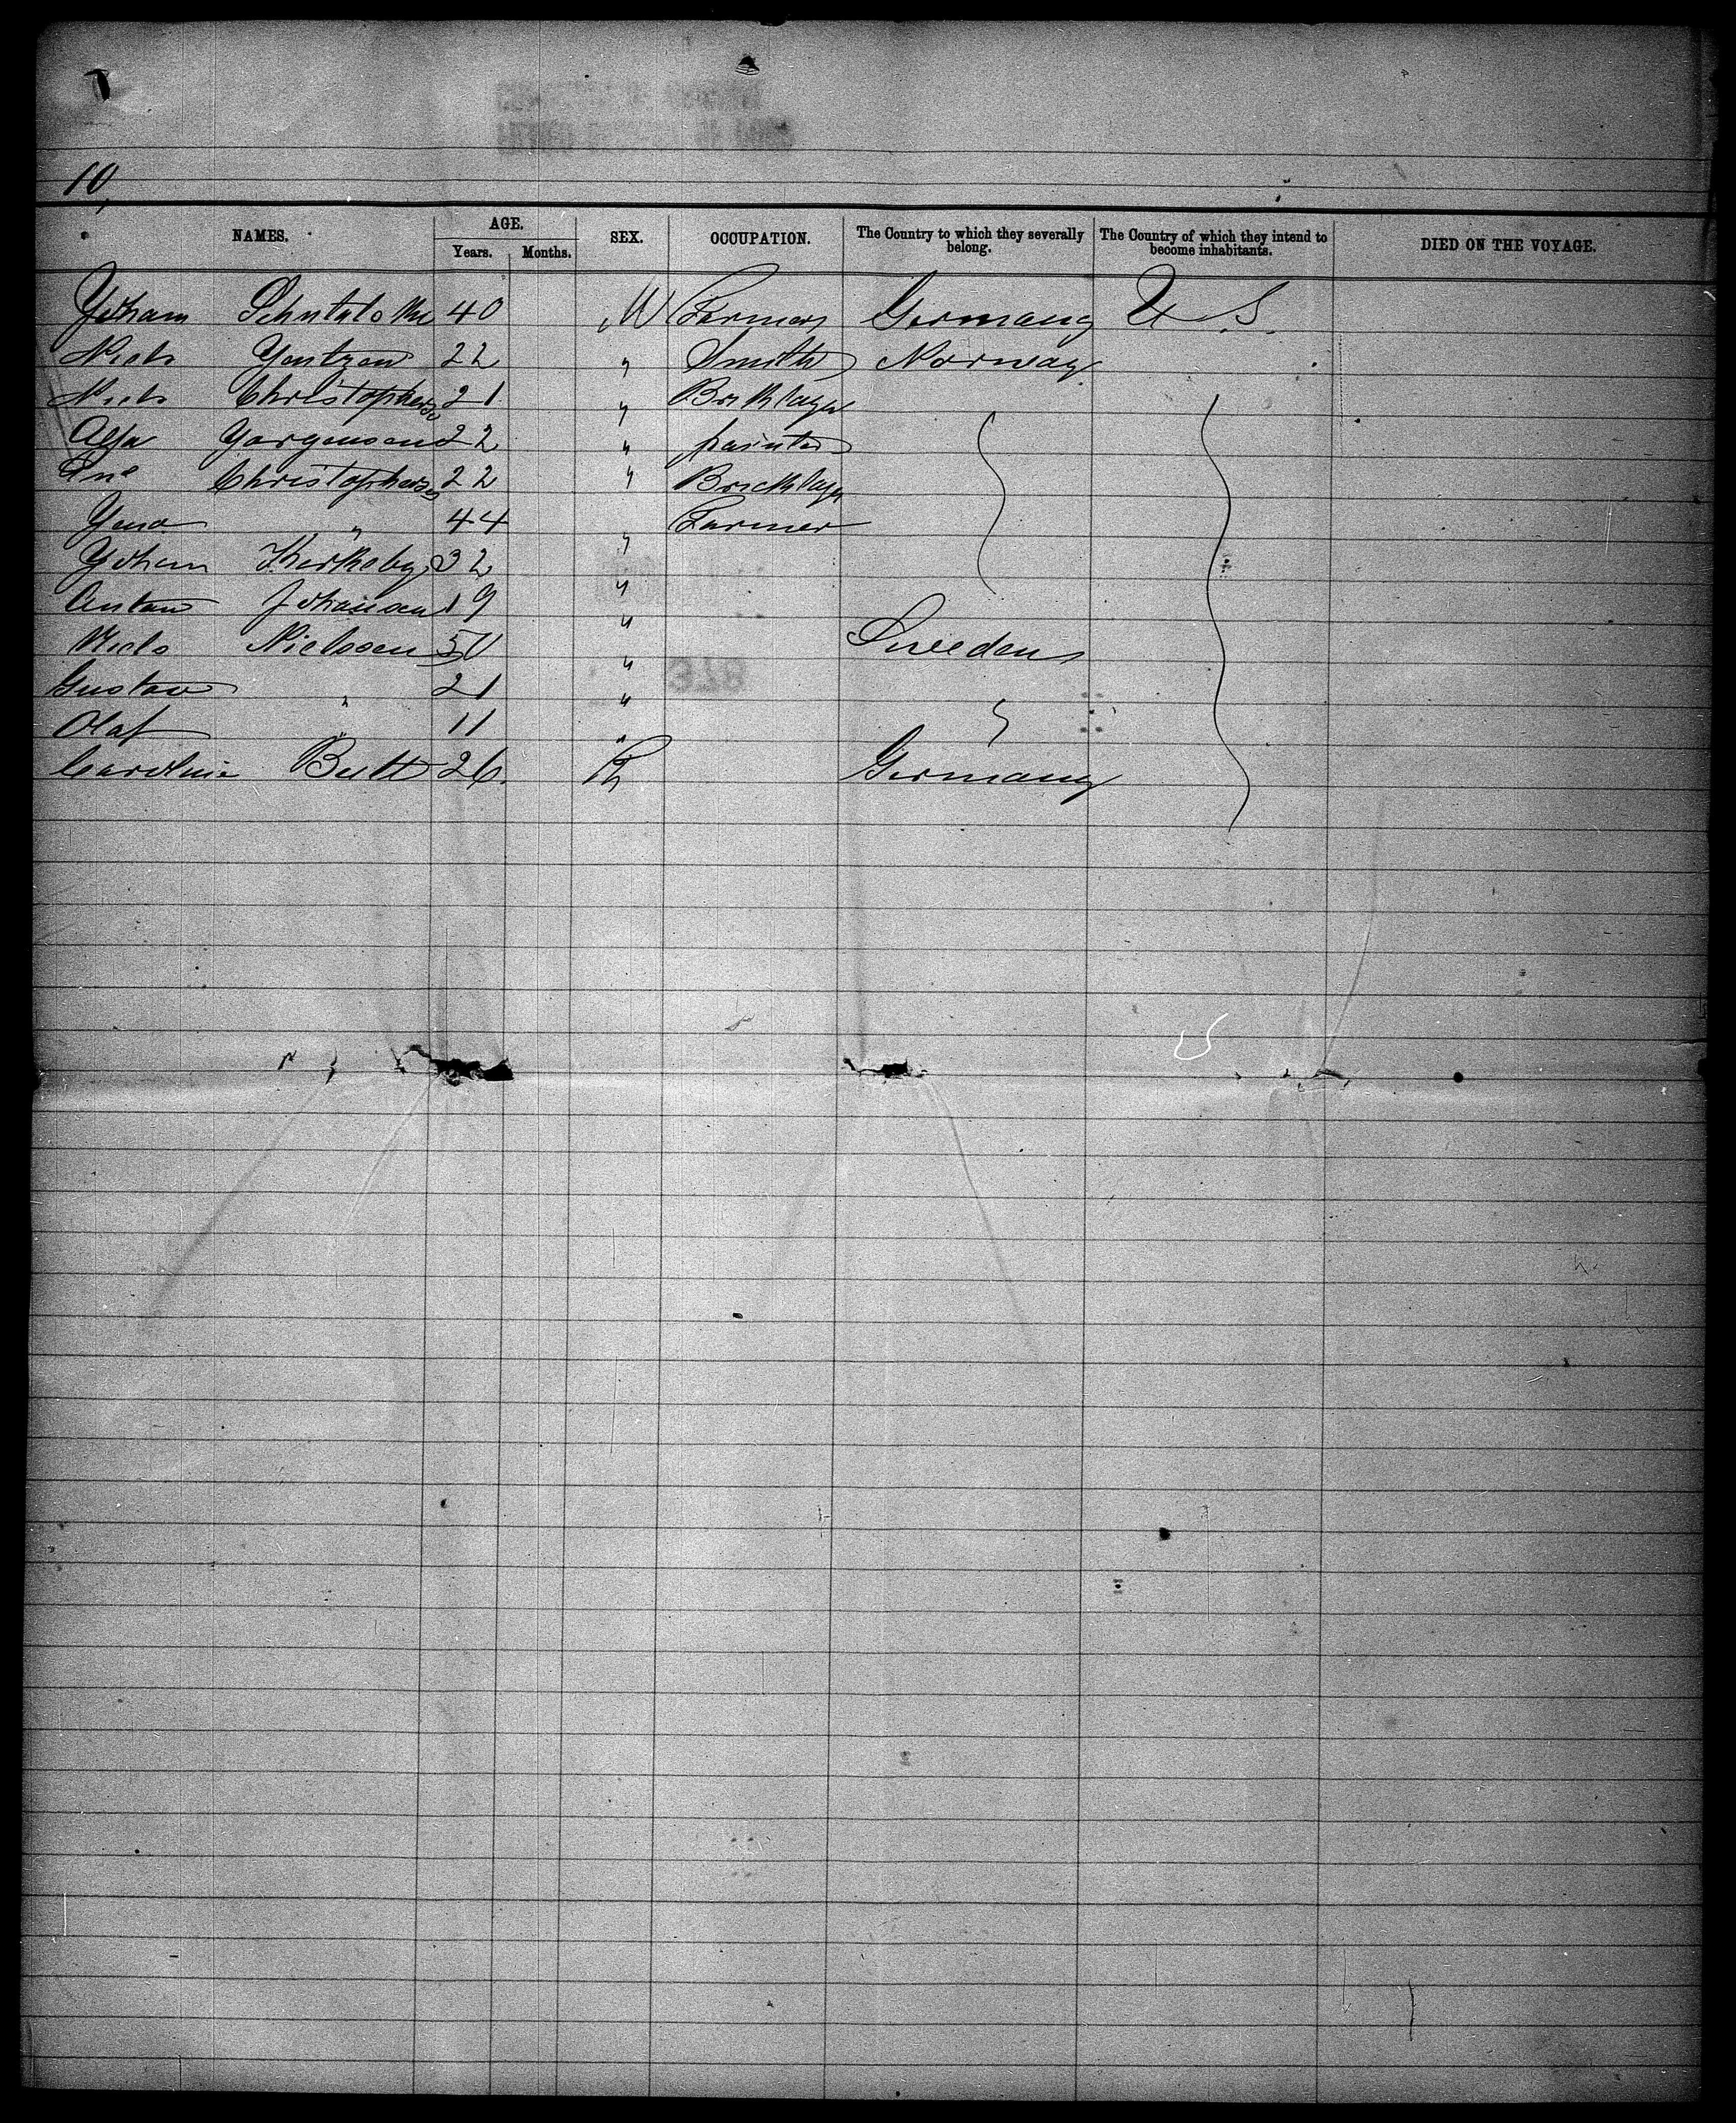 10,
NAMES. AGE. SEX. OCCUPATION. The Country to which they severally belong. The Country of which they intend to become inhabitants. DIED ON THE VOYAGE.
Years. Months.
Yoham 40 M Farmer Germany U S.
Niels Yentzen 22 " Smith Norway
Niels Christophersen 21 " Bricklayer
Yorgensen 22 " painter
Christophersen 22 " Bricklayer
" 44 " Farmer
Yoham 32 "
Anton Johansen 19 "
Niels Nielsen 50 " Sweeden
Gustav " 21 "
Olaf " 11 "
Caroline Butt 26. Germany